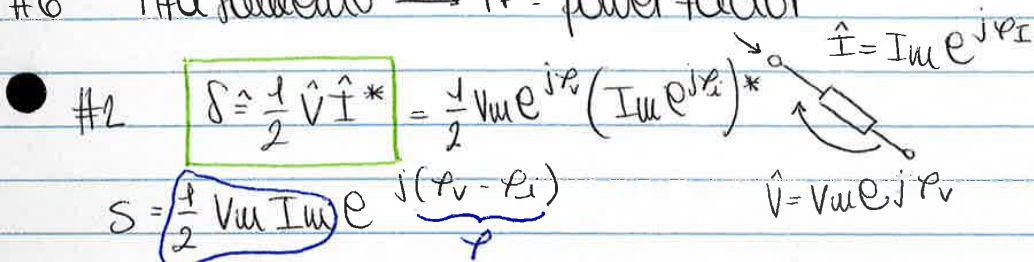 #6 → power factor
Î = Im e^{jφ_I}
#2 S ≙ 1/2 V̂ Î* = 1/2 Vm e^{jφ_v} (Im e^{jφ_i})*
S = 1/2 Vm Im e^{j(φ_v - φ_i)}
V̂ = Vm e^{jφ_v}
φ